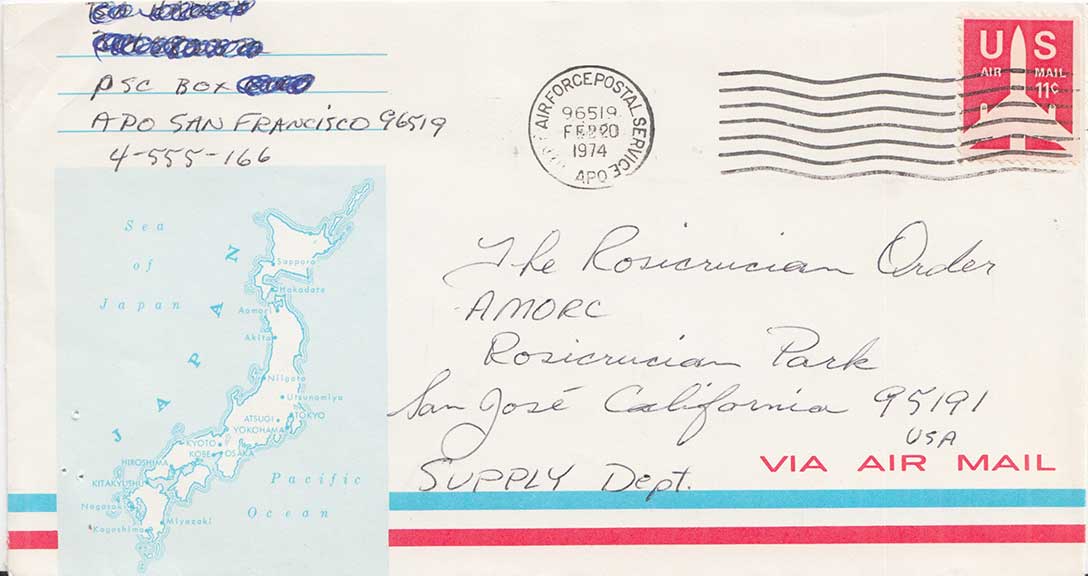 PSC BOX
APO SAN FRANCISCO 96519
4-555-166
AIR FORCE POSTAL SERVICE
96519
FEB 20
1974
APO
US
AIR MAIL
11¢
The Rosicrucian Order
AMORC
Rosicrucian Park
San José California 95191
USA
SUPPLY Dept.
VIA AIR MAIL
Sea
of
Japan
JAPAN
Sapporo
Hakodate
Aomori
Akita
Niigata
Utsunomiya
ATSUGI
TOKYO
YOKOHAMA
KYOTO
KOBE
OSAKA
HIROSHIMA
KITAKYUSHU
Nagasaki
Miyazaki
Kagoshima
Pacific
Ocean